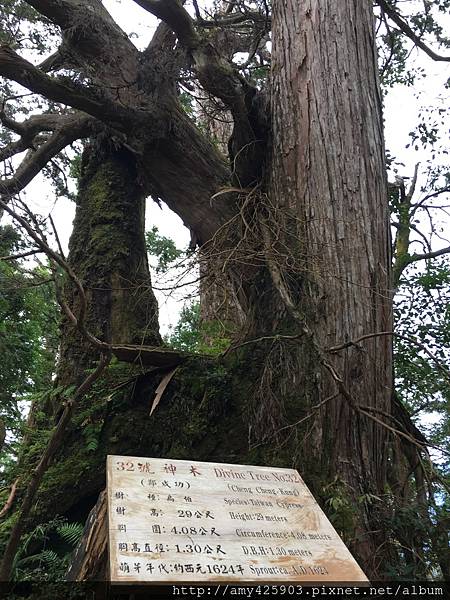 32號神木 Divine Tree No.32
(鄭成功) (Cheng Cheng-Kung)
樹 種: 扁 柏 Species:Taiwan Cypress
樹 高: 29公尺 Height:29 meters
胸 圍: 4.08公尺 Circumference:4.08 meters
胸高直徑:1.30公尺 D.B.H:1.30 meters
萌芽年代:約西元1624年 Sprouted:A.D.1624
http://amy425903.pixnet.net/album